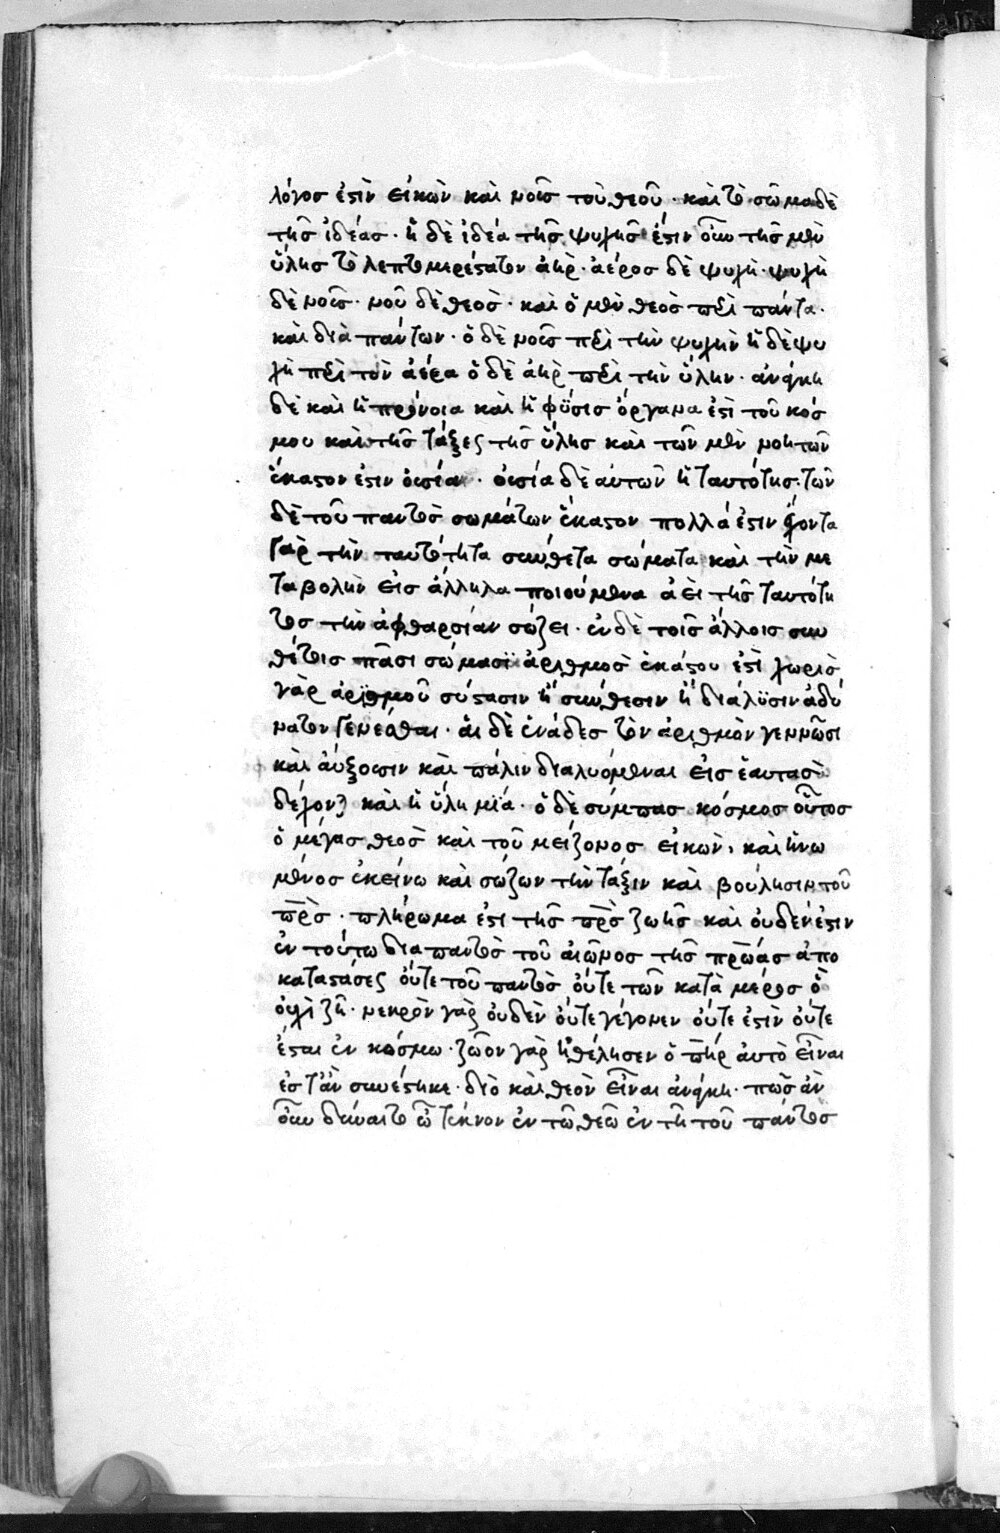 λόγος ἐστὶν εἰκὼν καὶ νοῦς τοῦ θεοῦ · καὶ τὸ σῶμα δὲ
τῆς ἰδέας · ἡ δὲ ἰδέα τῆς ψυχῆς ἔστιν οὖν τῆς μὲν
ὕλης τὸ λεπτομερέστατον ἀὴρ · ἀέρος δὲ ψυχὴ · ψυχὴ
δὲ νοῦς · νοῦ δὲ θεὸς · καὶ ὁ μὲν θεὸς περὶ πάντα ·
καὶ διὰ πάντων · ὁ δὲ νοῦς περὶ τὴν ψυχὴν ἡ δὲ ψυ
χὴ περὶ τὸν ἀέρα ὁ δὲ ἀὴρ περὶ τὴν ὕλην · ἀνάγκη
δὲ καὶ ἡ πρόνοια καὶ ἡ φύσις ὄργανα ἐστὶ τοῦ κόσ
μου καὶ τῆς τάξεως τῆς ὕλης καὶ τῶν μὲν νοητῶν
ἕκαστον ἐστιν οὐσία · οὐσία δὲ αὐτῶν ἡ ταυτότης · τῶν
δὲ τοῦ παντὸς σωμάτων ἕκαστον πολλά ἐστιν ἔχοντα
γὰρ τὴν ταυτότητα σύνθετα σώματα καὶ τὴν με
ταβολὴν εἰς ἄλληλα ποιούμενα ἀεὶ τῆς ταυτότη
τος τὴν ἀφθαρσίαν σώζει · ἐν δὲ τοῖς ἄλλοις συν
θέτοις πᾶσι σώμασϊ ἀριθμὸς ἑκάστου ἐστὶ χωρὶς
γὰρ ἀρϊθμοῦ σύστασιν ἢ σύνθεσιν ἢ διάλϋσιν ἀδύ
νατον γενέσθαι · αἱ δὲ ἑνάδες τὸν ἀριθμὸν γεννῶσι
καὶ αὔξουσιν καὶ πάλιν διαλυόμεναι εἰς ἑαυτὰς
δέχονται καὶ ἡ ὕλη μϊά · ὁ δὲ σύμπας κόσμος οὗτος
ὁ μέγας θεὸς καὶ τοῦ μείζονος εἰκὼν, καὶ ἡνω
μένος ἐκείνω καὶ σώζων τὴν τάξιν καὶ βούλησιν τοῦ
πρς · πλήρωμα ἐστι τῆς πρὸς ζωῆς καὶ οὐδέν ἐστιν
ἐν τούτω διαπαντὸς τοῦ αἰῶνος τῆς πρώας ἀπο
καταστάσεως οὔτε τοῦ παντὸς οὔτε τῶν κατὰ μέρος ὃ
οὐχὶ ζῆ · νεκρὸν γὰρ οὐδὲν οὔτε γέγονεν οὔτε ἐστὶν οὔτε
ἔσται ἐν κόσμω · ζῶον γὰρ ἠθέλησεν ὁ πηρ αὐτὸ εἶναι
ἐς τ' ἂν συνέστηκε · διὸ καὶ θεὸν εἶναι ἀνάγκη · πῶς ἂν
οὖν δύναιτο ὦ τέκνον ἐν τῶ θεῶ ἐν τῆ τοῦ παντὸς